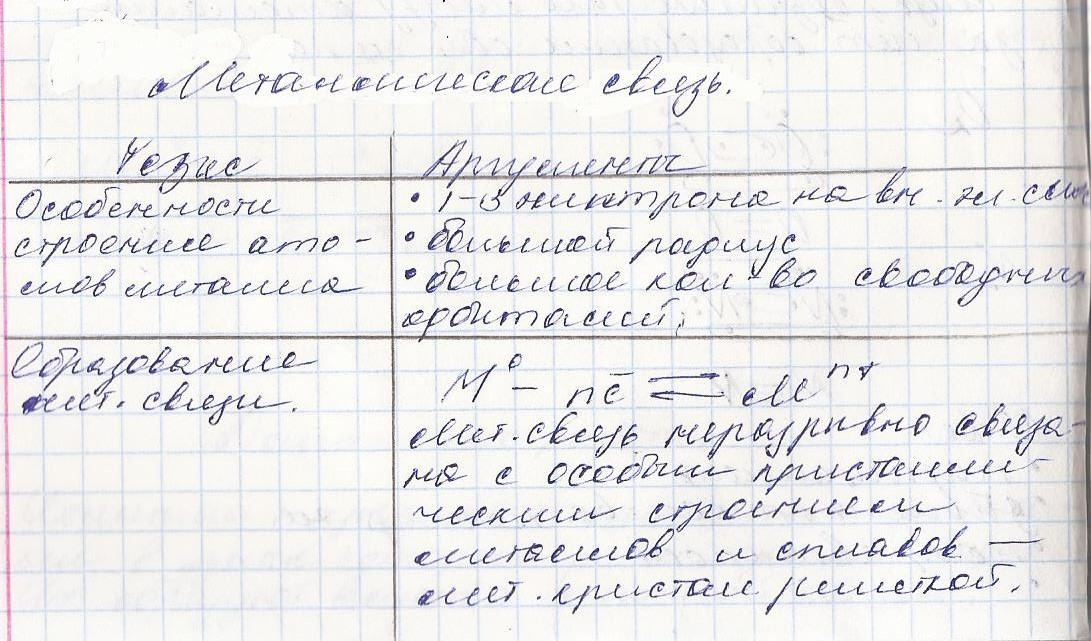 Металлическая связь.
Тезис
Аргументы
Особенности
строение ато-
мов металла
• 1-3 электрона на вн. эл. слое
• большой радиус
• большое кол-во свободных
орбиталий.
Образование
мет. связи.
M⁰ - nē ⇄ Mⁿ⁺
Мет. связь неразрывно связа-
на с особым кристалли-
ческим строением
металлов и сплавов —
мет. кристал решеткой.